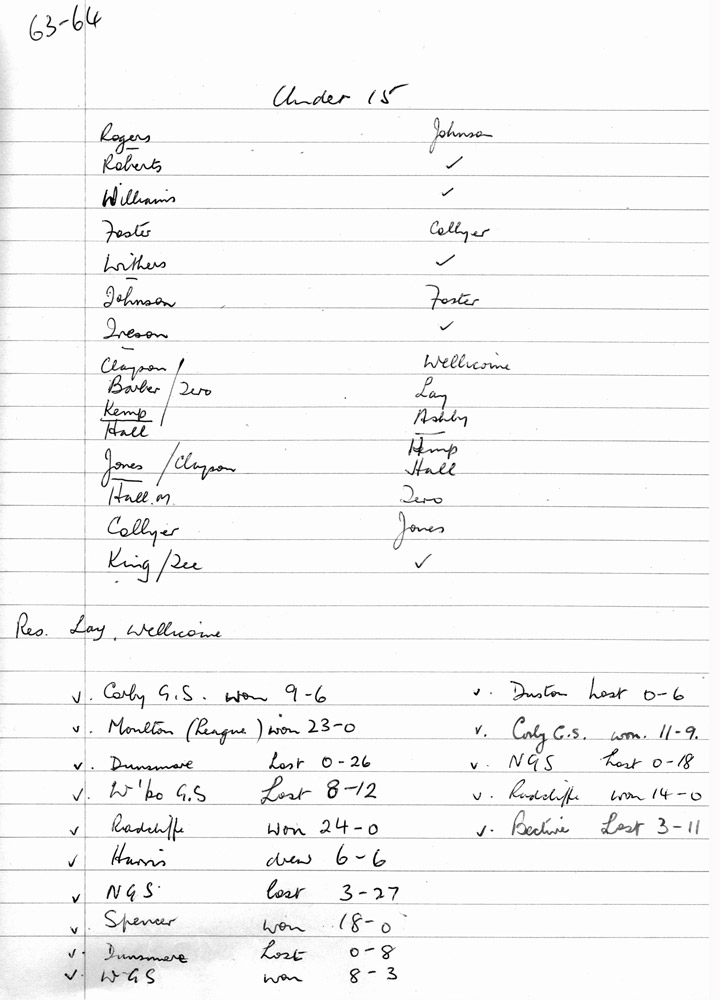 63-64
Under 15
Rogers Johnson
Roberts ✓
Williams ✓
Foster Collyer
Withers ✓
Johnson Foster
Ireson ✓
Claypon / Wellicome
Barber / Zero Lay
Kemp / Ashby
Hall Kemp
Jones / Claypon Hall
Hall. M. Zero
Collyer Jones
King / Zee ✓
Res. Lay, Wellicome
v. Corby G.S. won 9-6 v. Duston Lost 0-6
v. Moulton (League) won 23-0 v. Corby G.S. won. 11-9.
v. Dunsmore Lost 0-26 v. NGS Lost 0-18
v. W'bo G.S Lost 8-12 v. Radcliffe won 14-0
v. Radcliffe won 24-0 v. Bective Lost 3-11
v Harris drew 6-6
v NGS. lost 3-27
v Spencer won 18-0
v. Dunsmore Lost 0-8
v. WGS won 8-3